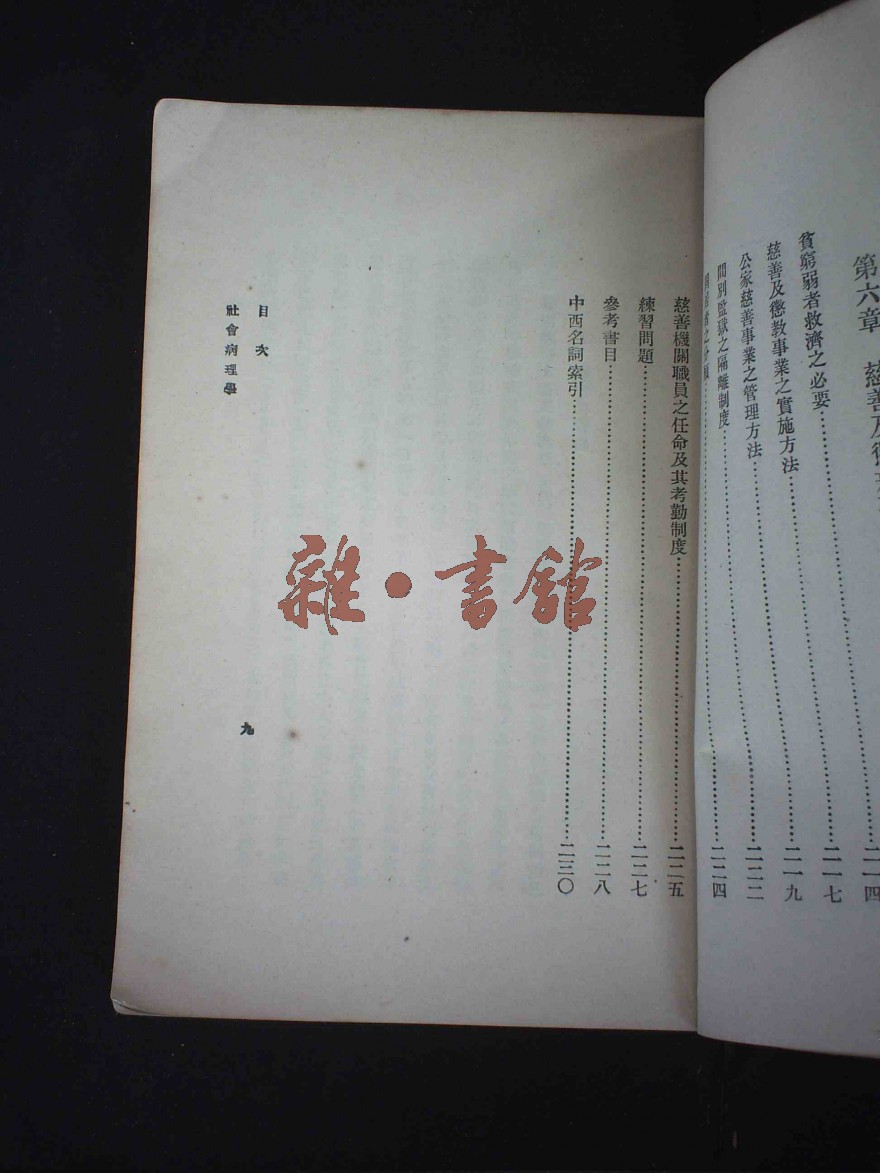 第六章 慈善及懲
二一四
貧窮弱者救濟之必要……二一七
慈善及懲教事業之實施方法……二一九
公家慈善事業之管理方法……二二二
間別監獄之隔離制度……二二四
慈善機關職員之任命及其考勤制度……二二五
練習問題……二二七
參考書目……二二八
中西名詞索引……二三〇
目次
社會病理學
九
雜·書館